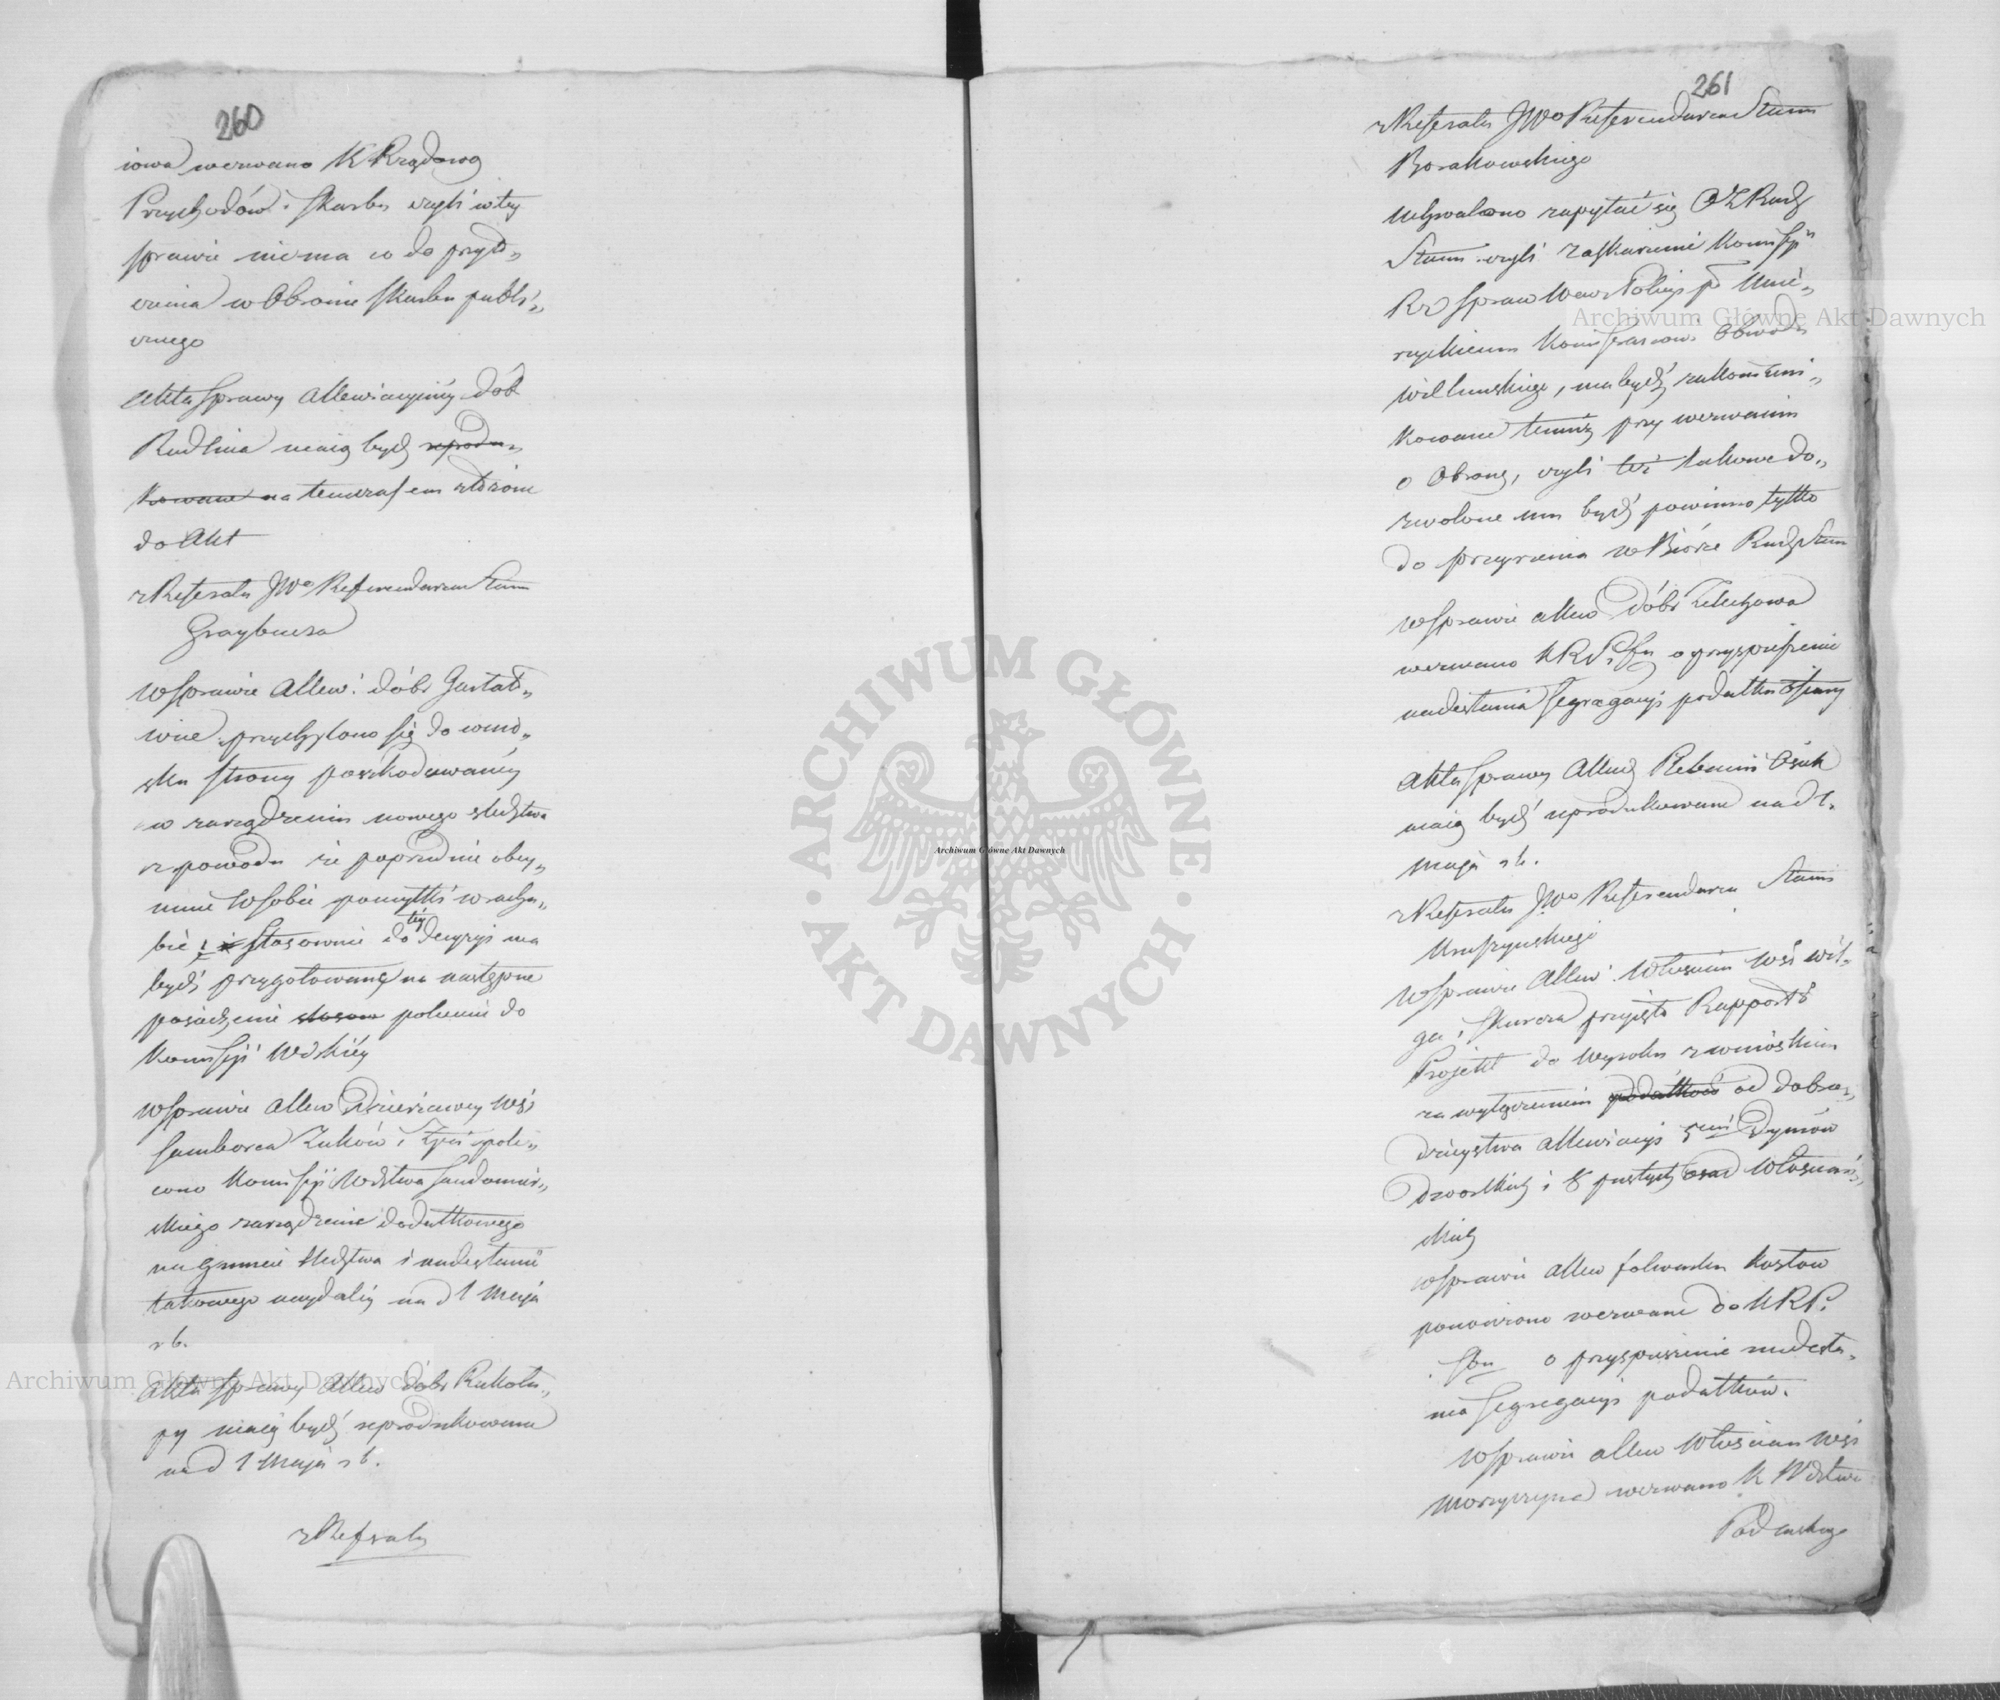 260
iowa wezwano K Rządową
Przychodów i Skarbu czyli w tey
sprawie niema co do przyto„
czenia w Obronie Skarbu publi„
cznego
Akta sprawy allewiacyiney dób
Rudlina maią bydź reprodu„
kowane na teraz złożone
do Akt
z Referatu JWo Referendarza Stanu
Graybnera
W sprawie Allew: dóbr
przychylono się do wnio„
sku strony poszkodowaney
w zarządzeniu nowego śledztwa
z powodu że poprzednie obey„
muie w sobie pomyłki w rachu„
bie; i stosownie do téy decyzyi ma
bydź przygotowane na następne
posiedzenie stosow polecenie do
Kommissyi Wdzkiéy
W sprawie allew Dzierżawcy wsi
Samborca Żuków i polec„
cono Komissyi Wdztwa Sandomir„
skiego zarządzenie dodatkowego
na gruncie śledztwa i nadesłanie
takowego naydaléy na d 1 Maja
r b.
Akta sprawy Allew dóbr Rukału„
py maią bydź reprodukowane
na d 1 Maja r b.
z Referatu
261
z Referatu JWo Referendarza Stanu
Borakowskiego
Uchwalono zapytać się Rady
Stanu czyli zaskarżenie Komissyi
Rz Spraw Wew Policyi
Kommissarzowi Obwodu
Wieluńskiego, ma bydź zakomuni„
kowane temuż przy wezwaniu
o Obronę, czyli też takowe do„
zwolone mu bydź powinno tylko
do przeyrzenia w Biórze Rady Stanu
W sprawie allew dóbr Żelechowa
wezwano KRP i Sbu o przyspieszenie
nadesłania segregacyi podatku ofiary
Akta sprawy Allew
maią bydź reprodukowane na d 1.
Maja r b.
z Referatu JWo Referendarza Stanu
W sprawie Allew: Włościan wsi Wil„
ga i Skurcza przyięto Rapport &
Projekt do Wyroku z wnioskiem
za wyłączeniem podatków od dobro„
dzieystwa allewiacyi 5ciu Dymów
Dworskich i 8 pustych osad Włościań„
skich
W sprawie Allew folwarku Kostow
ponowiono wezwanie do KRP:
Sbu o przyspieszenie nadesła„
nia segregacyi podatków.
W sprawie allew Włościan wsi
Morzyczyna wezwano K Wdztwa
Podlaskiego
Archiwum Główne Akt Dawnych
Archiwum Główne Akt Dawnych
Archiwum Główne Akt Dawnych
ARCHIWUM GŁÓWNE · AKT DAWNYCH ·